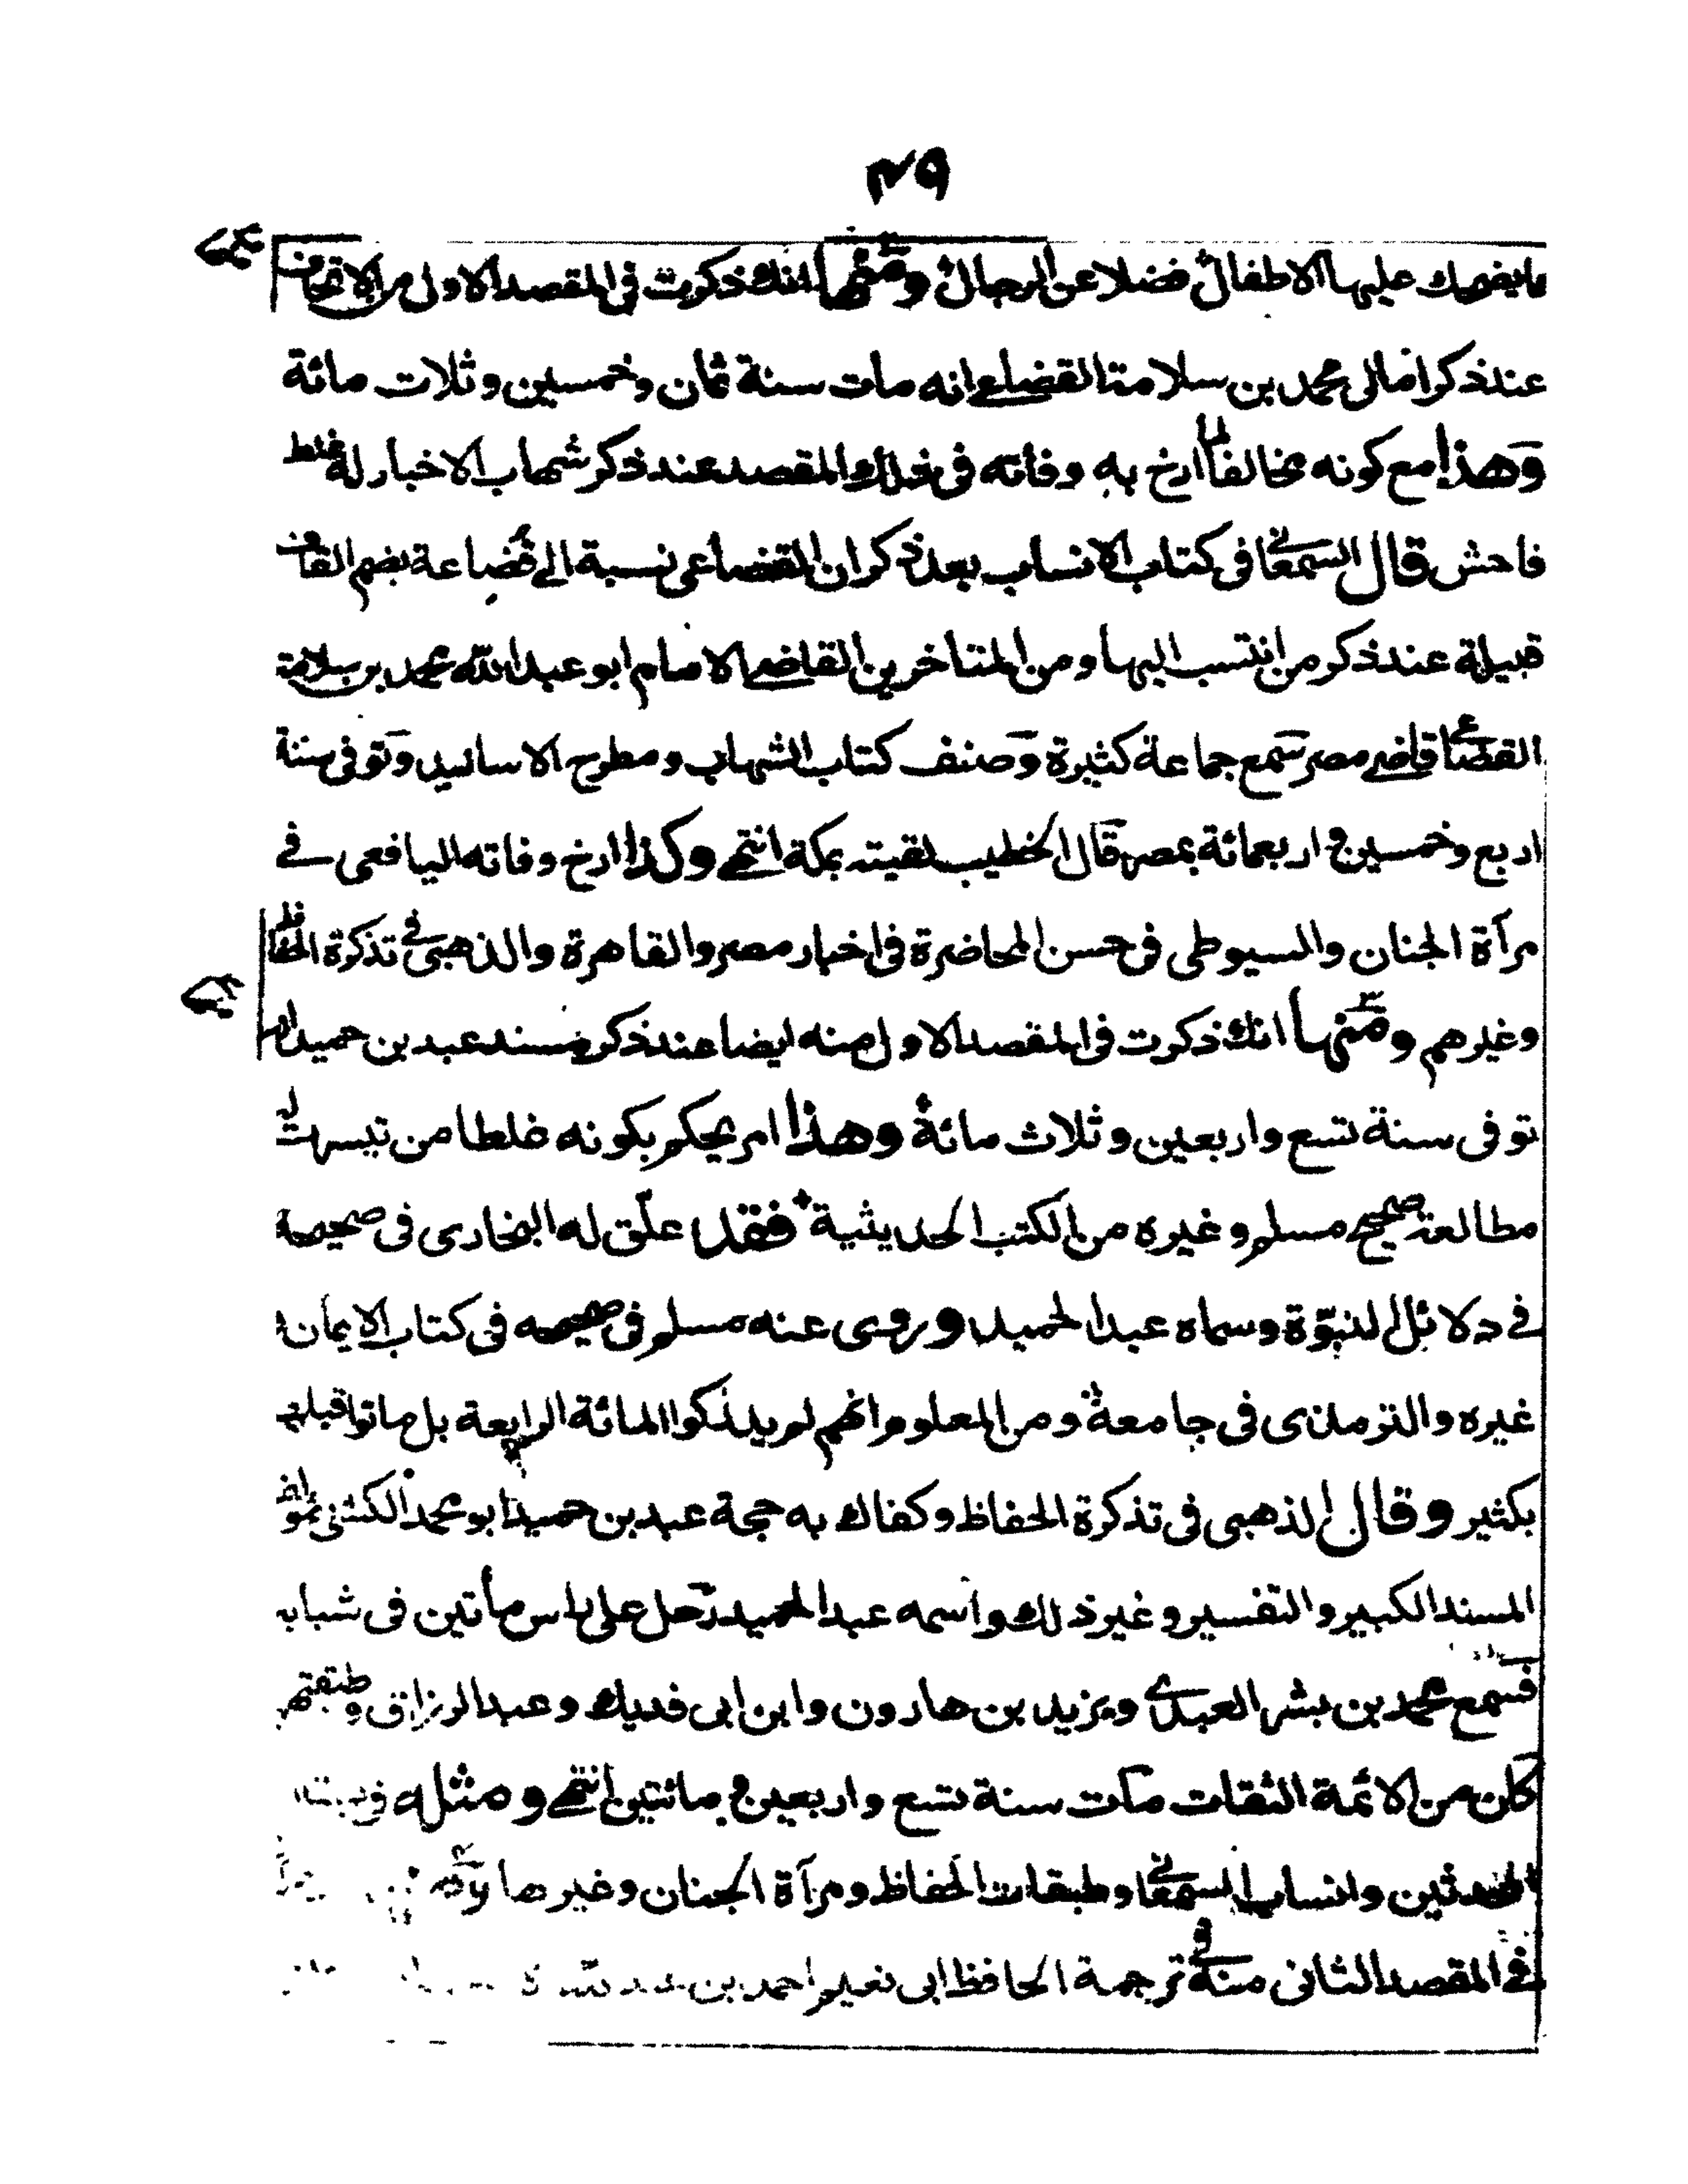 ٤٩
ما يضحك عليها الاطفال فضلا عن الرجال ومنها انك ذكرت فى المقصد الاول من الاتحاف
عند ذكر امالى محمد بن سلامة القضاعے انه مات سنة ثمان وخمسين وثلاث مائة
وهذا مع كونه مخالفا لما ارخ به وفاته فى ذلك المقصد عند ذكر شهاب الاخبار له غلط
فاحش قال السمعانے فى كتاب الانساب بعد ذكر ان القضاعى نسبة الى قضاعة بضم القاف
قبيلة عند ذكر من انتسب اليها ومن المتاخرين القاضے الامام ابو عبد الله محمد بن سلامة
القضاعے قاضے مصر سمع جماعة كثيرة وصنف كتاب الشهاب ومطرح الاسانيد وتوفى سنة
اربع وخمسين واربعمائة بمصر قال الخطيب لقيته بمكة انتهے وكذا ارخ وفاته اليافعى فے
مرآة الجنان والسيوطى فى حسن المحاضرة فى اخبار مصر والقاهرة والذهبى فے تذكرة الحفاظ
وغيرهم ومنها انك ذكرت فى المقصد الاول منه ايضا عند ذكر مسند عبد بن حميد انه
توفى سنة تسع واربعين وثلاث مائة وهذا امر يحكم بكونه غلطا من تيسرت له
مطالعة صحيح مسلم وغيره من الكتب الحديثية فقد علّق له البخارى فى صحيحه
فے دلائل النبوّة وسماه عبد الحميد وروى عنه مسلم فى صحيحه فى كتاب الايمان و
غيره والترمذى فى جامعه ومن المعلوم انهم لم يدركوا المائة الرابعة بل ماتوا قبلها
بكثير وقال الذهبى فى تذكرة الحفاظ وكفاك به حجة عبد بن حميد ابو محمد الكشى مؤلف
المسند الكبير والتفسير وغير ذلك واسمه عبد الحميد رحل على راس مأتين فى شبابه
فسمع محمد بن بشر العبدے ويزيد بن هارون وابن ابى فديك وعبد الرزاق وطبقتهم
كان من الائمة الثقات مات سنة تسع واربعين ومائتين انتهے ومثله فى
المحدثين وانساب السمعانے وطبقات الحفاظ ومرآة الجنان وغيرها
فے المقصد الثانى منه فى ترجمة الحافظ ابى نعيم احمد بن